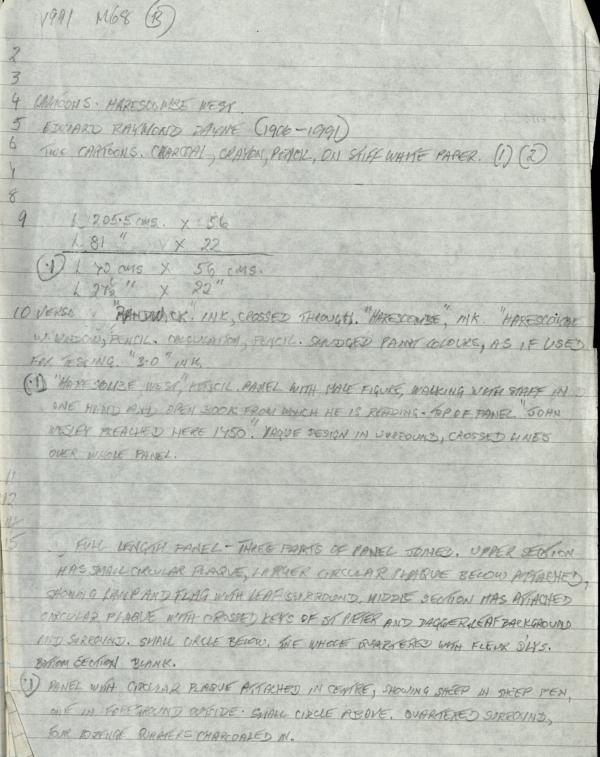 1991 M68 (B)
2
3
4 CARTOONS. HARESCOMBE WEST
5 EDWARD RAYMOND PAYNE (1906-1991)
6 TWO CARTOONS. CHARCOAL, CRAYON, PENCIL, ON STIFF WHITE PAPER. (1) (2)
7
8
9 L 205.5 CMS. X 56
L 81 " X 22
(.1) L 70 CMS X 56 CMS.
L 27½ " X 22"
10 VERSO "RANDWICK" INK, CROSSED THROUGH. "HARESCOMBE", INK. "HARESCOMBE
W. WINDOW, PENCIL. CALCULATION, PENCIL. SMUDGED PAINT COLOURS, AS IF USED
FOR TESTING. "3.0" INK,
(.1) "HARESCOMBE WEST", PENCIL. PANEL WITH MALE FIGURE, WALKING WITH STAFF IN
ONE HAND AND OPEN BOOK FROM WHICH HE IS READING - TOP OF PANEL "JOHN
WESLEY PREACHED HERE 1750". VAGUE DESIGN IN SURROUND, CROSSED LINES
OVER WHOLE PANEL.
11
12
15 FULL LENGTH PANEL - THREE PARTS OF PANEL JOINED. UPPER SECTION
HAS SMALL CIRCULAR PLAQUE, LARGER CIRCULAR PLAQUE BELOW ATTACHED,
SHOWING LAMB AND FLAG WITH LEAF SURROUND. MIDDLE SECTION HAS ATTACHED
CIRCULAR PLAQUE WITH CROSSED KEYS OF ST PETER AND DAGGER. LEAF BACKGROUND
AND SURROUND. SMALL CIRCLE BELOW. THE WHOLE QUARTERED WITH FLEUR D'LYS.
BOTTOM SECTION BLANK.
(.1) PANEL WITH CIRCULAR PLAQUE ATTACHED IN CENTRE, SHOWING SHEEP IN SHEEP PEN,
ONE IN FOREGROUND OUTSIDE. SMALL CIRCLE ABOVE. QUARTERED SURROUND,
FOUR LOZENGE QUARTERS CHARCOALED IN.